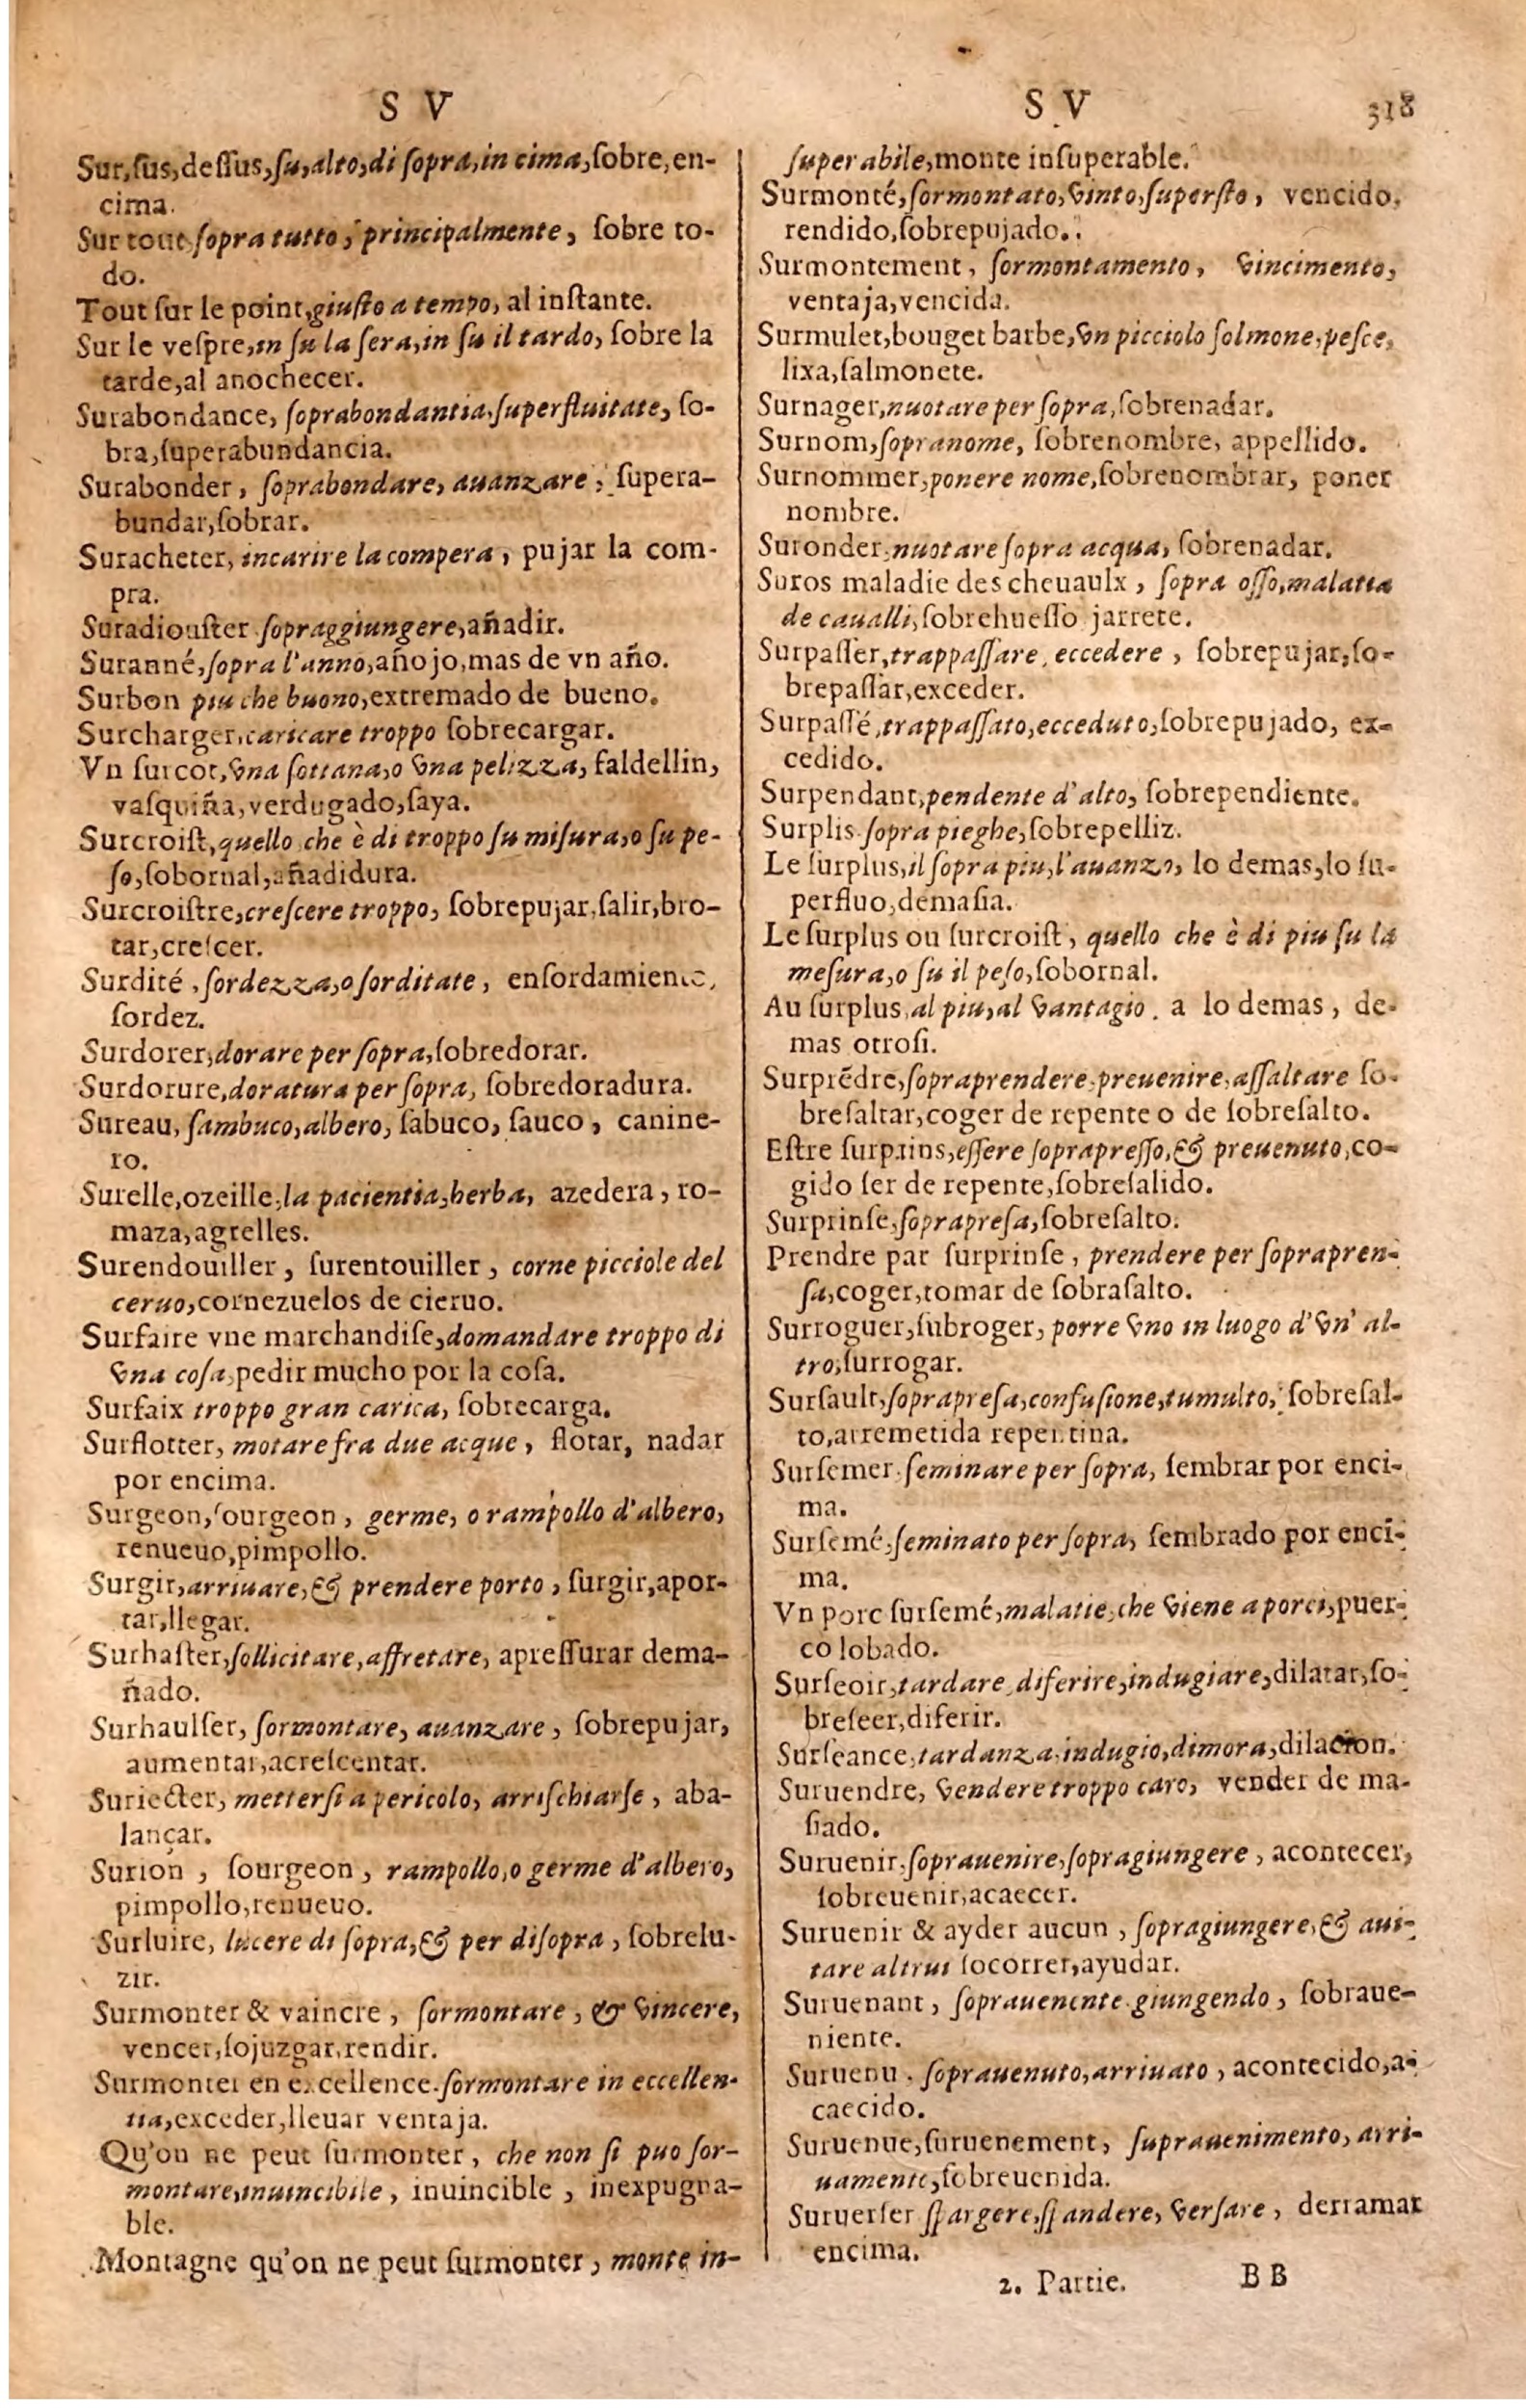 S V
Sur, sus, dessus, su, alto, di sopra, in cima, sobre, en-
cima.
Sur tout, sopra tutto, principalmente, sobre to-
do.
Tout sur le point, giusto a tempo, al instante.
Sur le vespre, in su la sera, in su il tardo, sobre la
tarde, al anochecer.
Surabondance, soprabondantia, superfluitate, so-
bra, superabundancia.
Surabonder, soprabondare, auanzare, supera-
bundar, sobrar.
Suracheter, incarire la compera, pujar la com-
pra.
Suradiouster sopraggiungere, añadir.
Suranné, sopra l'anno, añojo, mas de vn año.
Surbon piu che buono, extremado de bueno.
Surcharger, caricare troppo sobrecargar.
Vn surcot, vna sottana, o vna pelizza, faldellin,
vasquiña, verdugado, saya.
Surcroist, quello che è di troppo su misura, o su pe-
so, sobornal, añadidura.
Surcroistre, crescere troppo, sobrepujar, salir, bro-
tar, crescer.
Surdité, sordezza, o sorditate, ensordamiento,
sordez.
Surdorer, dorare per sopra, sobredorar.
Surdorure, doratura per sopra, sobredoradura.
Sureau, sambuco, albero, sabuco, sauco, canine-
ro.
Surelle, ozeille, la pacientia, herba, azedera, ro-
maza, agrelles.
Surendouiller, surentouiller, corne picciole del
ceruo, cornezuelos de cieruo.
Surfaire vne marchandise, domandare troppo di
vna cosa, pedir mucho por la cosa.
Surfaix troppo gran carica, sobrecarga.
Surflotter, motare fra due acque, flotar, nadar
por encima.
Surgeon, sourgeon, germe, o rampollo d'albero,
renueuo, pimpollo.
Surgir, arriuare, & prendere porto, surgir, apor-
tar, llegar.
Surhaster, sollicitare, affretare, apressurar dema-
ñado.
Surhaulser, sormontare, auanzare, sobrepujar,
aumentar, acrescentar.
Suriecter, mettersi a pericolo, arrischiarse, aba-
lançar.
Surion, sourgeon, rampollo, o germe d'albero,
pimpollo, renueuo.
Surluire, lucere di sopra, & per disopra, sobrelu-
zir.
Surmonter & vaincre, sormontare, & vincere,
vencer, sojuzgar, rendir.
Surmonter en excellence. sormontare in eccellen-
tia, exceder, lleuar ventaja.
Qu'on ne peut surmonter, che non si puo sor-
montare, inuincibile, inuincible, inexpugna-
ble.
Montagne qu'on ne peut surmonter, monte in-
S V 318
superabile, monte insuperable.
Surmonté, sormontato, vinto, supersto, vencido,
rendido, sobrepujado.
Surmontement, sormontamento, vincimento,
ventaja, vencida.
Surmulet, bouget barbe, vn picciolo solmone, pesce,
lixa, salmonete.
Surnager, nuotare per sopra, sobrenadar.
Surnom, sopranome, sobrenombre, appellido.
Surnommer, ponere nome, sobrenombrar, poner
nombre.
Suronder, nuotare sopra acqua, sobrenadar.
Suros maladie des cheuaulx, sopra osso, malatia
de caualli, sobrehuesso jarrete.
Surpasser, trappassare, eccedere, sobrepujar, so-
brepassar, exceder.
Surpassé, trappassato, ecceduto, sobrepujado, ex-
cedido.
Surpendant, pendente d'alto, sobrependiente.
Surplis sopra pieghe, sobrepelliz.
Le surplus, il sopra piu, l'auanzo, lo demas, lo su-
perfluo, demasia.
Le surplus ou surcroist, quello che è di piu su la
mesura, o su il peso, sobornal.
Au surplus, al piu, al vantagio. a lo demas, de-
mas otrosi.
Surprẽdre, sopraprendere, preuenire, assaltare so-
bresaltar, coger de repente o de sobresalto.
Estre surprins, essere soprapresso, & preuenuto, co-
gido ser de repente, sobresalido.
Surprinse, soprapresa, sobresalto.
Prendre par surprinse, prendere per soprapren-
sa, coger, tomar de sobrasalto.
Surroguer, subroger, porre vno in luogo d'vn' al-
tro, surrogar.
Sursault, soprapresa, confusione, tumulto, sobresal-
to, arremetida repentina.
Sursemer, seminare per sopra, sembrar por enci-
ma.
Sursemé, seminato per sopra, sembrado por enci-
ma.
Vn porc sursemé, malatie, che viene a porci, puer-
co lobado.
Surseoir, tardare, diferire, indugiare, dilatar, so-
breseer, diferir.
Surseance, tardanza, indugio, dimora, dilacion.
Suruendre, vendere troppo caro, vender de ma-
siado.
Suruenir, soprauenire, sopragiungere, acontecer,
sobreuenir, acaecer.
Suruenir & ayder aucun, sopragiungere, & aui-
tare altrui socorrer, ayudar.
Suruenant, soprauenente giungendo, sobraue-
niente.
Suruenu, soprauenuto, arriuato, acontecido, a-
caecido.
Suruenue, suruenement, suprauenimento, arri-
uamente, sobreuenida.
Suruerser spargere, spandere, versare, derramar
encima.
2. Partie. BB